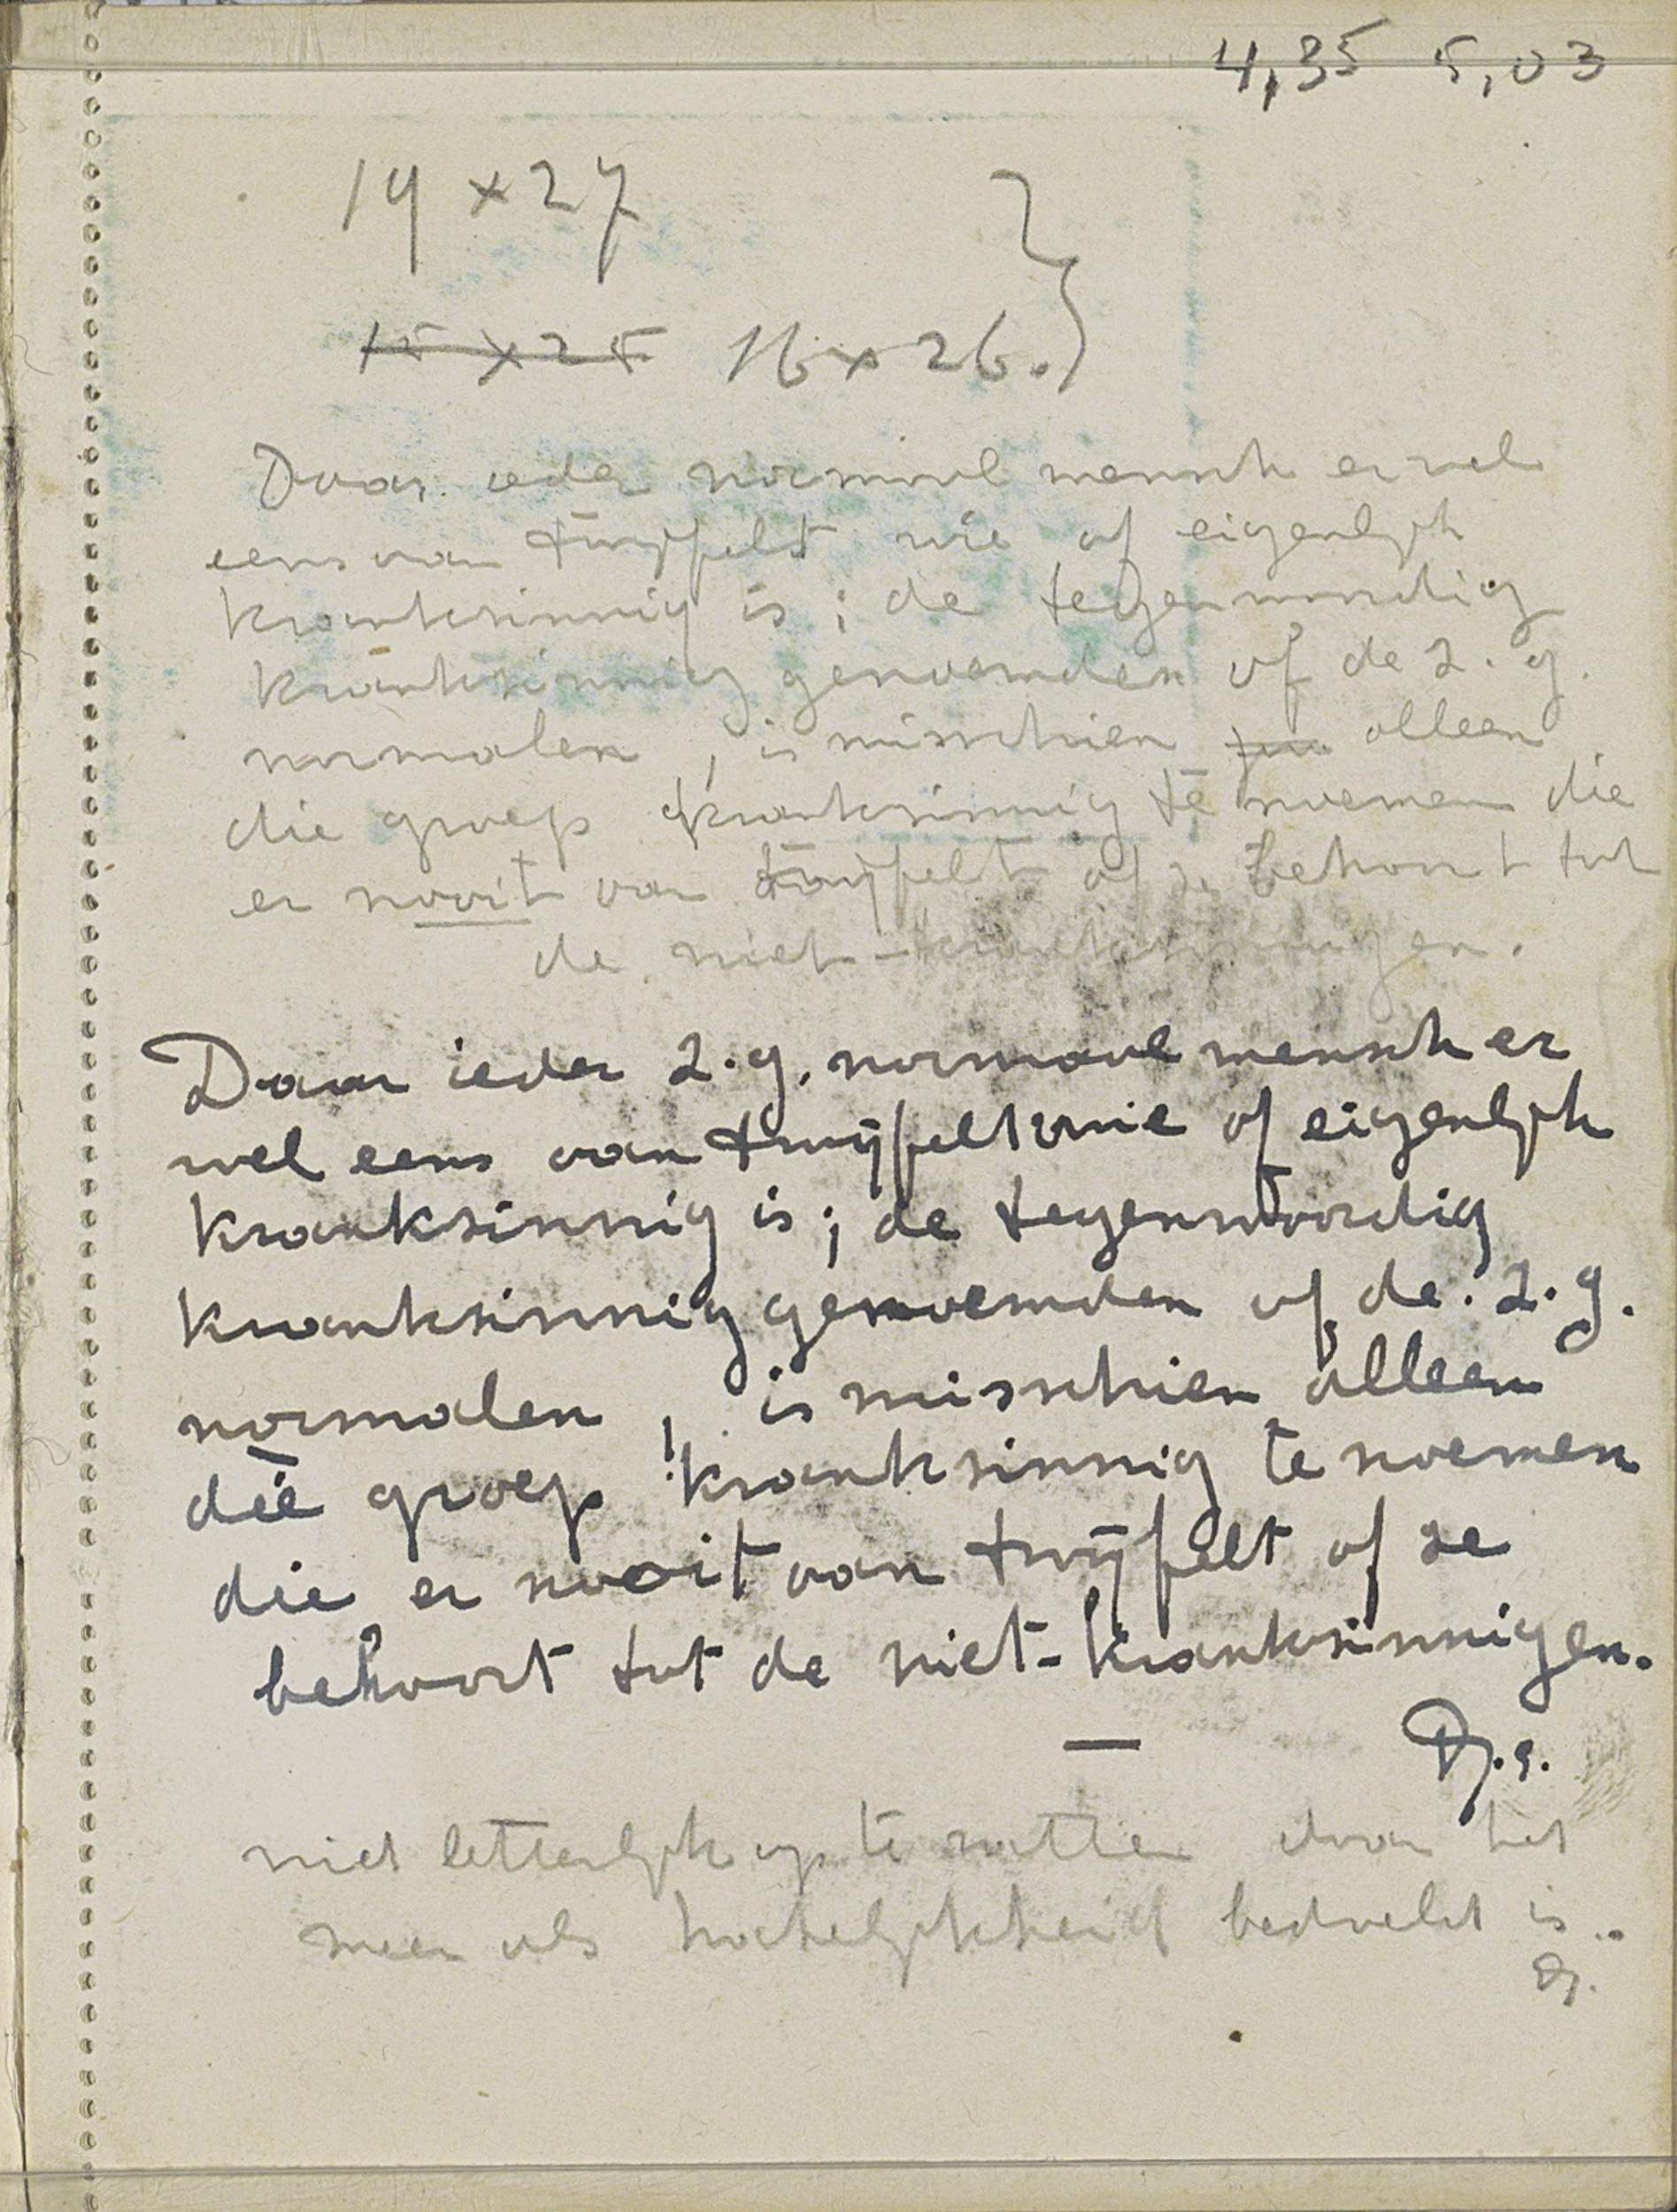 4,35 5,03
19 x 27 }
15 x 25 16 x 26.
Daar ieder normaal mensch er wel
eens aan twijfelt wie of eigenlijk
krankzinnig is; de tegenwoordig
krankzinnig genoemden of de z.g.
normalen, is misschien alleen
die groep krankzinnig te noemen die
er nooit aan twijfelt of ze behoort tot
de niet-krankzinnigen.
Daar ieder z.g. normaal mensch er
wel eens aan twijfelt wie of eigenlijk
krankzinnig is; de tegenwoordig
krankzinnig genoemden of de z.g.
normalen, is misschien alleen
díe groep krankzinnig te noemen
die er nooit aan twijfelt of ze
behoort tot de niet-krankzinnigen.
—
niet letterlijk op te vatten daar het
meer als hatelijkheid bedoeld is..